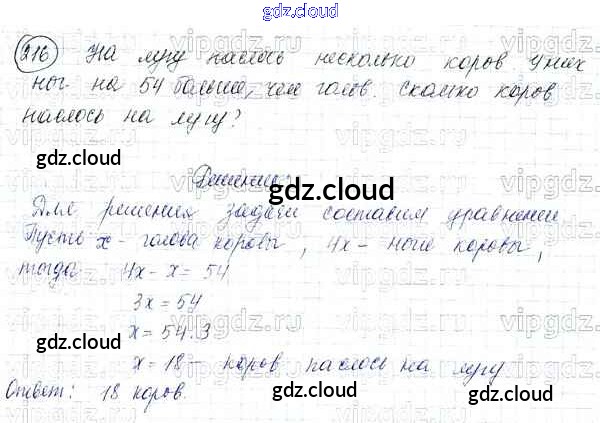 gdz.cloud
216 На лугу паслось несколько коров У них
ног на 54 больше, чем голов. Сколько коров
паслось на лугу?
gdz.cloud
gdz.cloud
Решение:
gdz.cloud
Для решения задачи составим уравнение
Пусть x - голова коровы, 4x - ноги коровы,
тогда 4x - x = 54
3x = 54
gdz.cloud
gdz.cloud
x = 54:3
x = 18 - коров паслось на лугу
Ответ: 18 коров.
gdz.cloud
gdz.cloud
vipgdz.ru